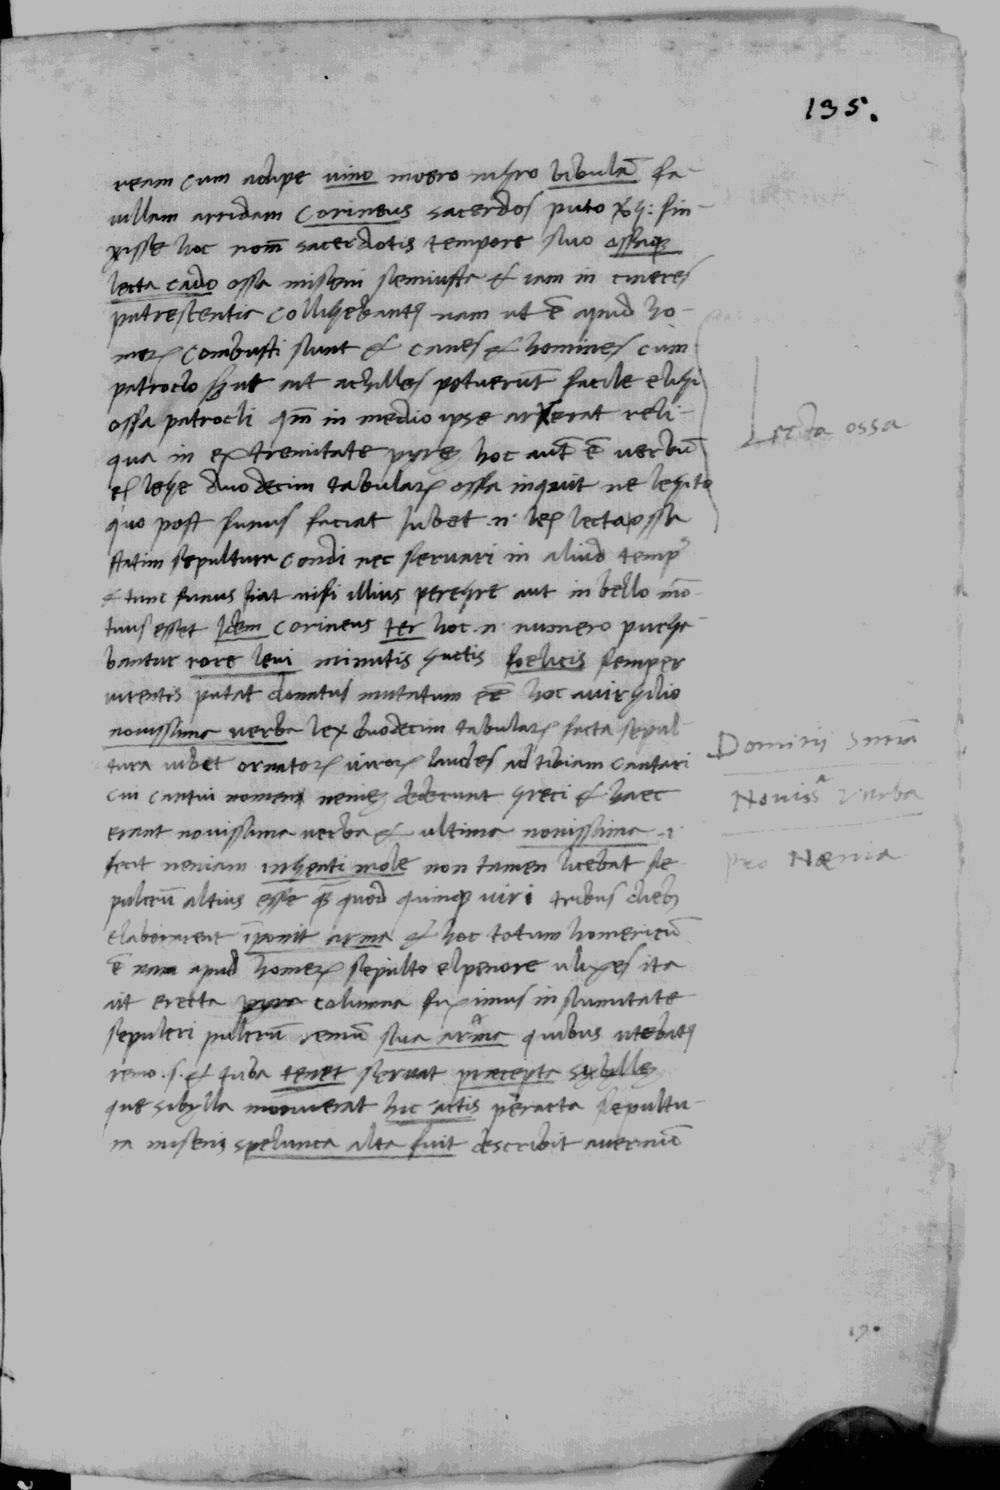 135.
ream cum adipe uino mero nigro bibulā fa-
uillam arridam Corineus sacerdos puto Virg: fin-
xisse hoc nom̄ sacerdotis tempore suo ossaq;
lecta cado ossa miseni semiusta & iam in cineres
putrescentia Collihebant nam ut ē apud ho-
mer Combusti sunt & canes & homines cum
patroclo ait achilles potuerūt facile elihi
ossa patrocli qm̄ in medio ipse arxerat reli-
qua in extremitate pyrę hoc aut̄ ē uerbū
ex lege duodecim tabular ossa inquit ne legito
quo post funus faciat iubet .n. lex lecta ossa
statim sepultura condi nec seruari in aliud temp
& tunc funus fiat nisi illius peregre aut in bello mō-
tuus esset Idem Corineus ter hoc .n. numero purga-
bantur rore leui minutis guttis foelicis semper
uirentis putat donatus mutatum eē hoc auirgilio
nouissima uerba lex duodecim tabular facta sepul-
tura iubet ornator uiror laudes ad tibiam cantari
Cui cantui nomen nenię dederunt greci & haec
erant nouissima uerba & ultima nouissima .i.
fecit neniam ingenti mole non tamen licebat se-
pulcrū altius esse quod quinq; uiri tribus dieb
elaborarent īponit arma & hoc totum homericū
ē nam apud homer sepulto elpenore ulixes ita
ait erecta pyra columna fiximus in summitate
sepulcri pulcrū remū sua arma quibus utebat
remo .s. & tuba tenet seruat praecepta sybillę
que sibylla monuerat hic actis peracta sepultu-
ra miseni spelunca alta fuit describit auernū
Lecta ossa
Nouissa Verba
pro Nænia